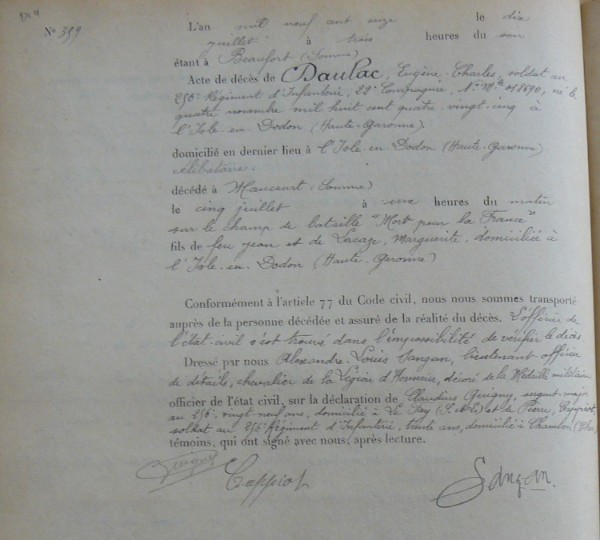 N° 399
L'an mil neuf cent seize le dix
juillet à trois heures du soir
étant à Beaufort (Somme)
Acte de décès de Daulac, Eugène Charles, soldat au
256e Régiment d'Infanterie, 22e Compagnie, N° Mle né le
quatre novembre mil huit cent quatre-vingt-cinq à
l'Isle-en-Dodon (Haute-Garonne)
domicilié en dernier lieu à l'Isle-en-Dodon (Haute-Garonne)
célibataire.
décédé à Maucourt (Somme)
le cinq juillet à onze heures du matin
sur le champ de bataille "Mort pour la France"
fils de feu Jean et de Lacaze, Marguerite, domiciliée à
l'Isle-en-Dodon (Haute-Garonne)
Conformément à l'article 77 du Code civil, nous nous sommes transporté
auprès de la personne décédée et assuré de la réalité du décès. L'officier de
l'état-civil s'est trouvé dans l'impossibilité de vérifier le décès
Dressé par nous Alexandre Louis Sangan, lieutenant officier
de détails, chevalier de la Légion d'Honneur, décoré de la Médaille militaire
officier de l'état civil, sur la déclaration de Claudius Geugny, sergent major
au 256, vingt neuf ans, domicilié à Le Fay (S.&L.) et de Pierre,
soldat au 256e Régiment d'Infanterie, trente ans, domicilié à
témoins, qui ont signé avec nous, après lecture.
Sangan